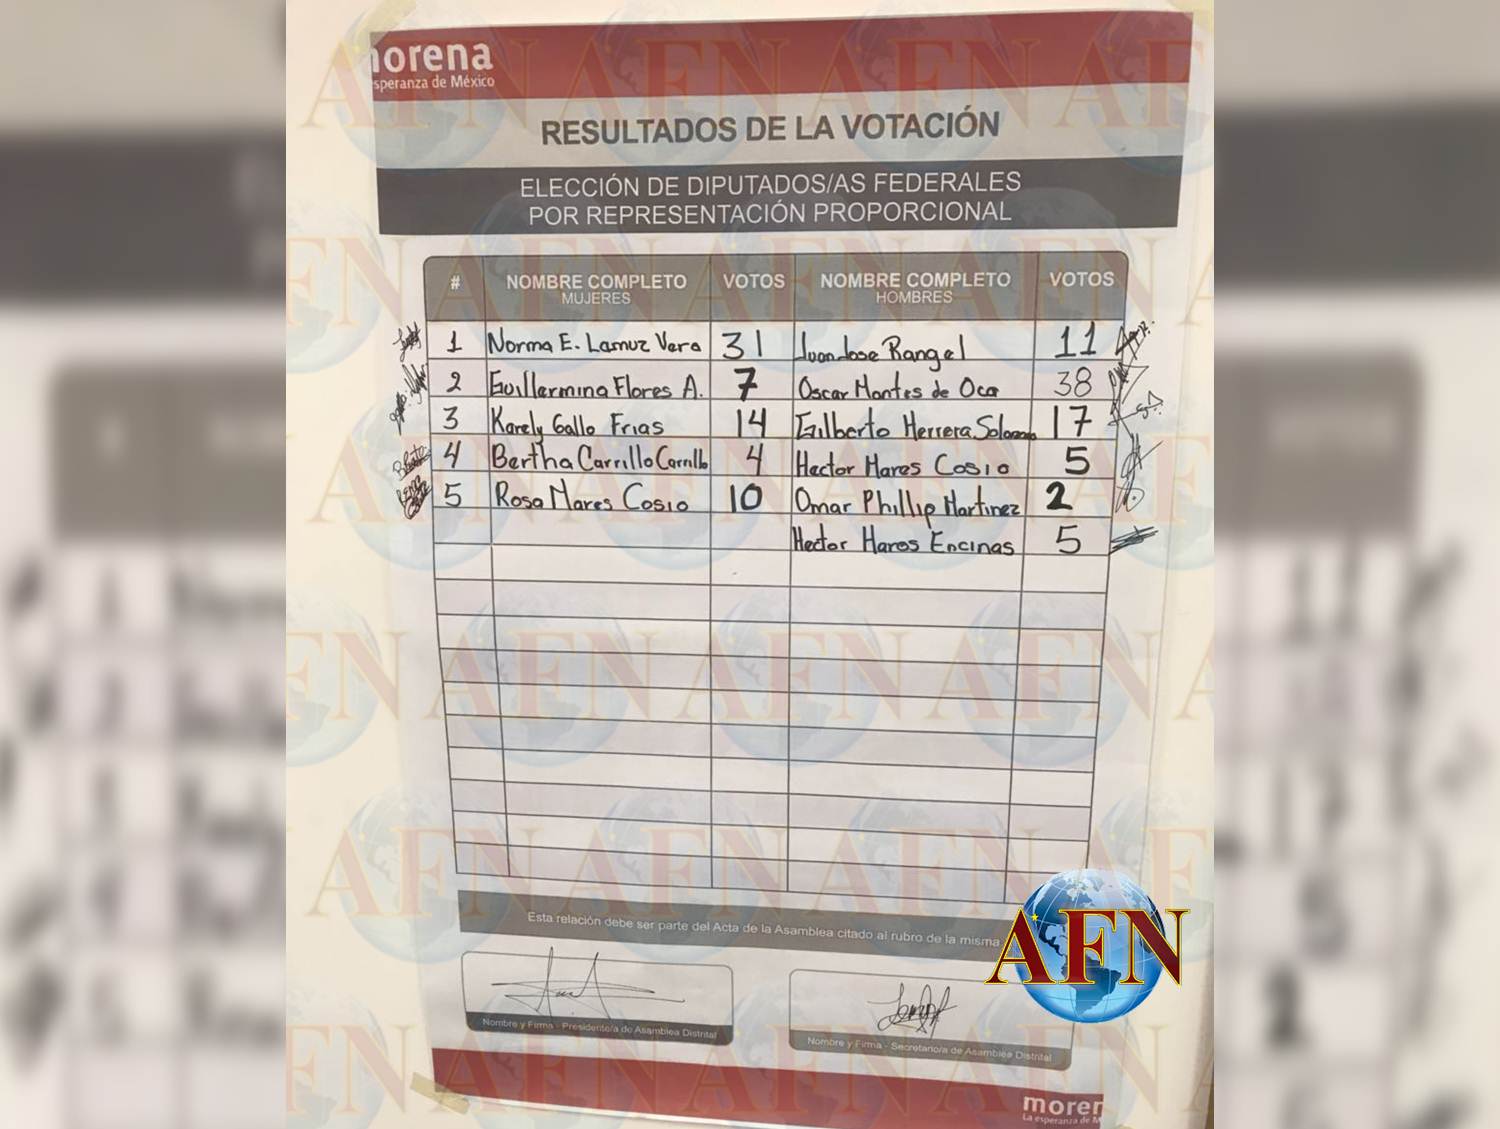 morena
esperanza de México
RESULTADOS DE LA VOTACIÓN
ELECCIÓN DE DIPUTADOS/AS FEDERALES
POR REPRESENTACIÓN PROPORCIONAL
# NOMBRE COMPLETO MUJERES VOTOS NOMBRE COMPLETO HOMBRES VOTOS
1 Norma E. Lamuz Vera 31 Juan Jose Rangel 11
2 Guillermina Flores A. 7 Oscar Montes de Oca 38
3 Karely Gallo Frias 14 Gilberto Herrera 17
4 Bertha Carrillo Carrillo 4 Hector Mares Cosio 5
5 Rosa Mares Cosio 10 Omar Phillip Martinez 2
Hector Mares Encinas 5
Esta relación debe ser parte del Acta de la Asamblea citado al rubro de la misma
AFN
Nombre y Firma - Presidente/a de Asamblea Distrital
Nombre y Firma - Secretario/a de Asamblea Distrital
moren
La esperanza de M